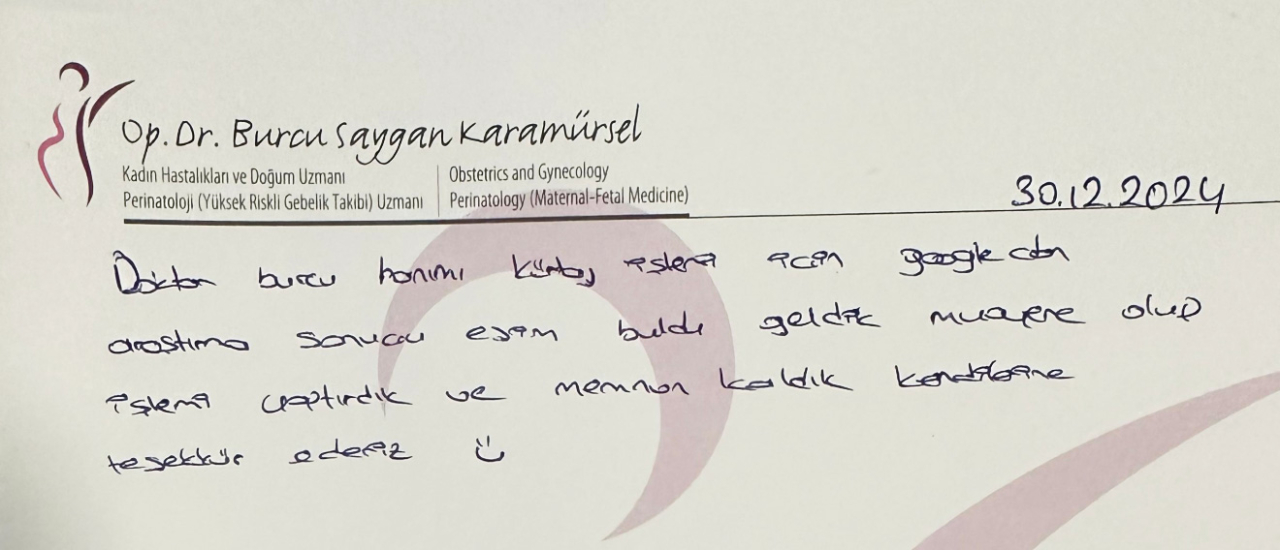 Op. Dr. Burcu Saygan Karamürsel
Kadın Hastalıkları ve Doğum Uzmanı
Perinatoloji (Yüksek Riskli Gebelik Takibi) Uzmanı
Obstetrics and Gynecology
Perinatology (Maternal-Fetal Medicine)
30.12.2024
Doktor burcu hanımı kürtaj işlemi için google dan
araştırma sonucu eşim buldu geldik muayene olup
işlemi yaptırdık ve memnun kaldık kendilerine
teşekkür ederiz